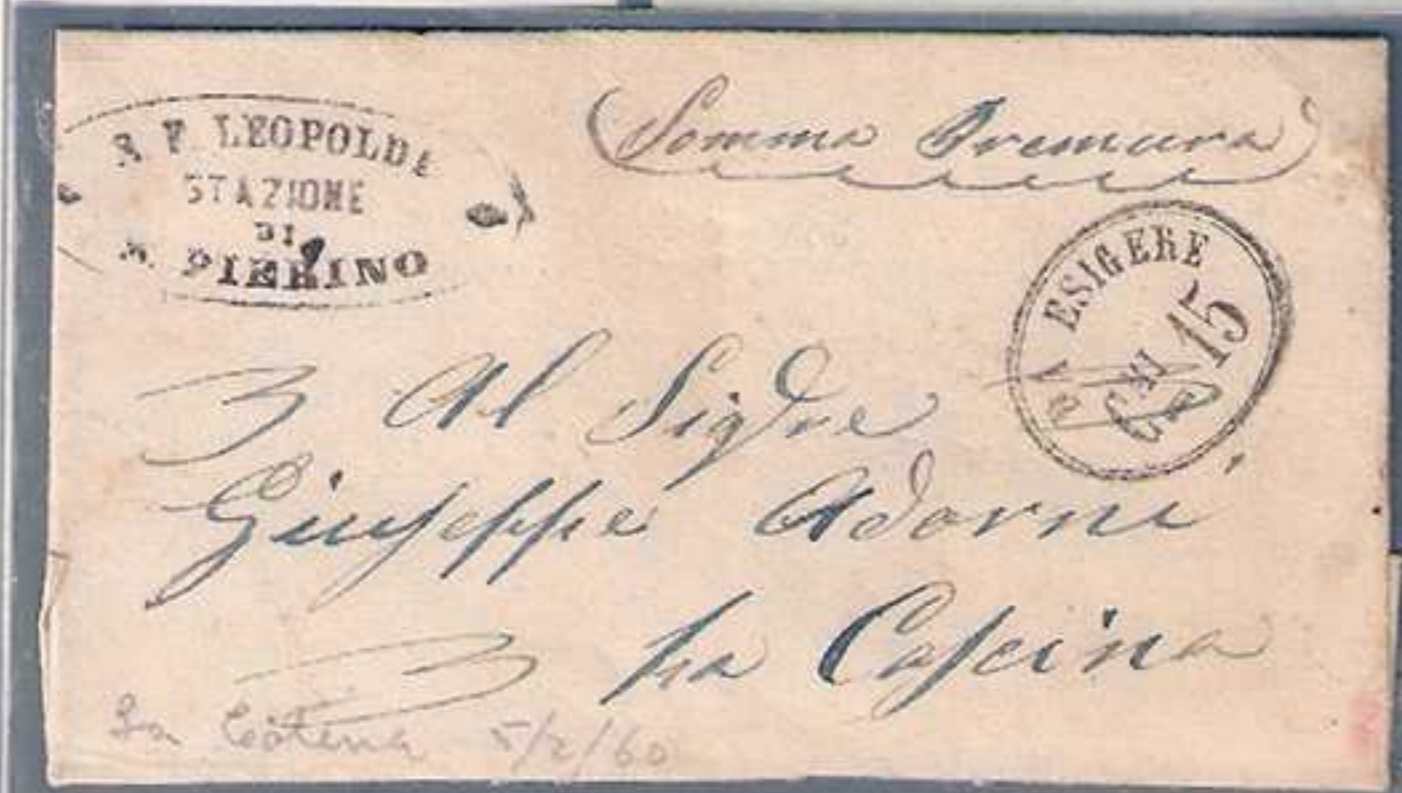 S F LEOPOLDA
STAZIONE
DI
S. PIERINO
Somma Premura
DA ESIGERE
CMI 15
Al Sigre
Giuseppe Adorni
per Cascina
La Catena 5/2/60